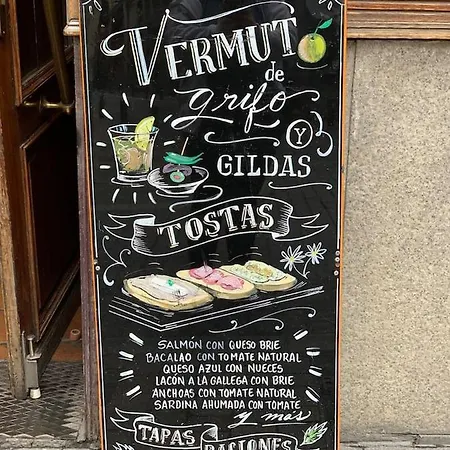 VERMUT
de
grifo
Y
GILDAS
TOSTAS
SALMÓN CON QUESO BRIE
BACALAO CON TOMATE NATURAL
QUESO AZUL CON NUECES
LACÓN A LA GALLEGA CON BRIE
ANCHOAS CON TOMATE NATURAL
SARDINA AHUMADA CON TOMATE
y más
TAPAS RACIONES